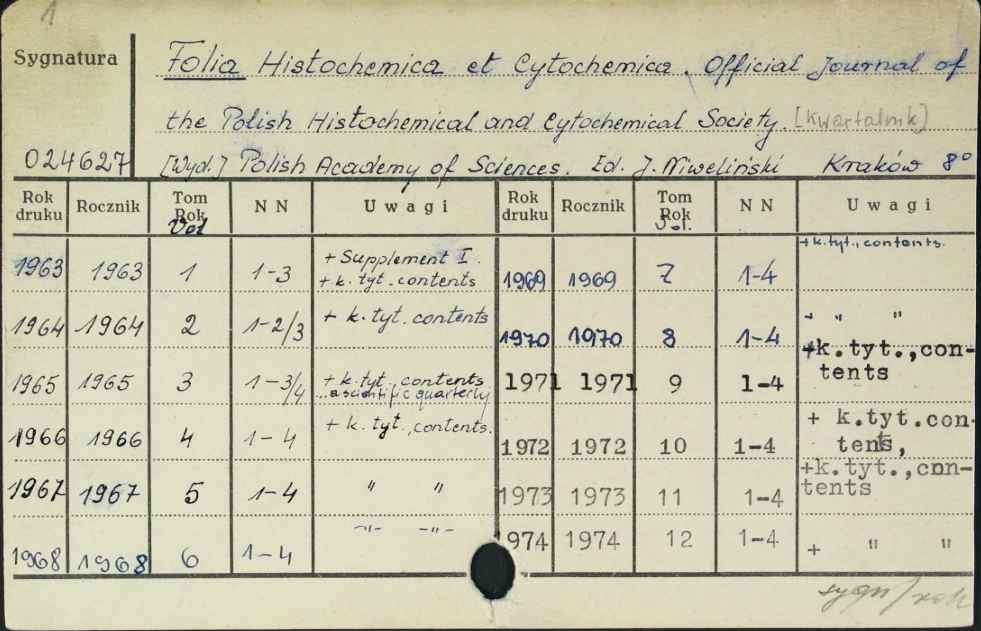 1
Sygnatura
Folia Histochemica et Cytochemica. Official Journal of
the Polish Histochemical and Cytochemical Society. [Kwartalnik]
024627 [Wyd.] Polish Academy of Sciences. Ed. J. Niweliński Kraków 8°
Rok druku Rocznik Tom Rok Vol N N Uwagi Rok druku Rocznik Tom Rok Vol. N N Uwagi
1963 1963 1 1-3 + Supplement I. + k. tyt. contents 1969 1969 7 1-4 + k. tyt., contents.
1964 1964 2 1-2/3 + k. tyt. contents 1970 1970 8 1-4 " " "
1965 1965 3 1-3/4 + k. tyt., contents ...a scientific quarterly 1971 1971 9 1-4 +k.tyt.,con-tents
1966 1966 4 1-4 + k. tyt., contents. 1972 1972 10 1-4 + k.tyt.con-tents,
1967 1967 5 1-4 " " 1973 1973 11 1-4 +k.tyt.,cnn-tents
1968 1968 6 1-4 -"- -"- 1974 1974 12 1-4 + " "